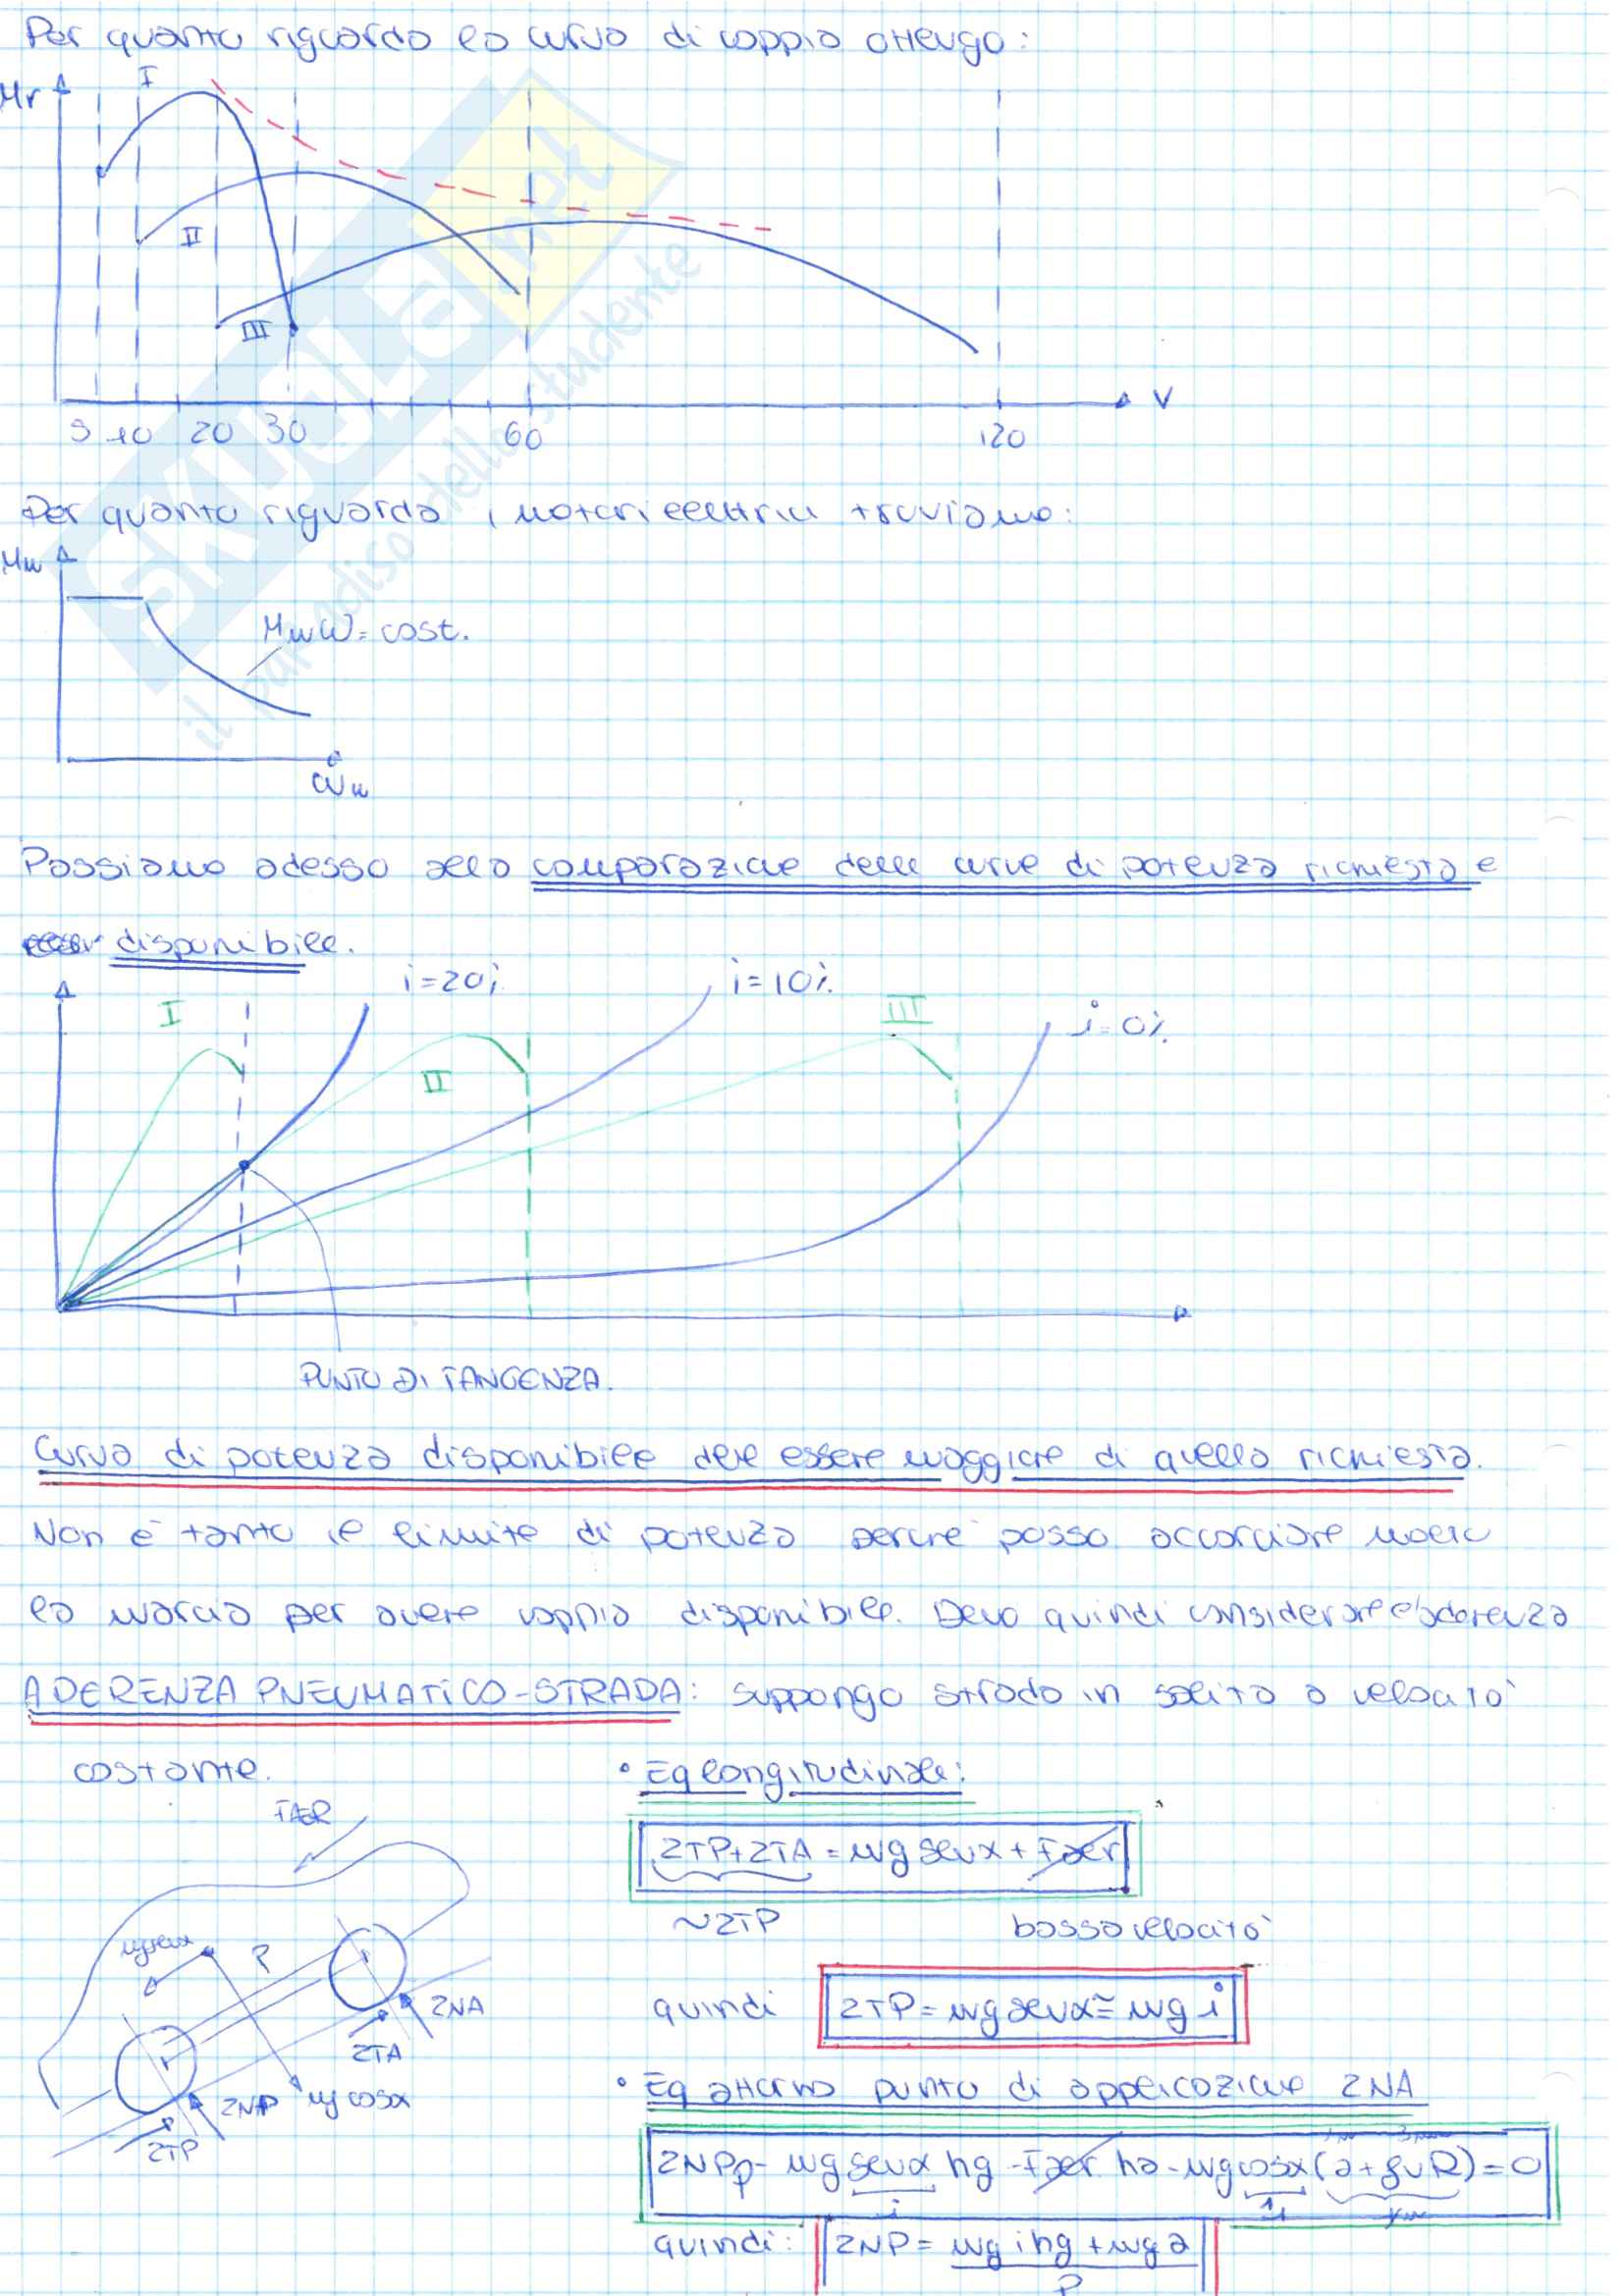 Per quanto riguarda la curva di coppia ottengo:
Mr
I
II
III
5 10 20 30 60 120 V
Per quanto riguarda i motori elettrici troviamo:
Mm
Mmω = cost.
ωm
Passiamo adesso alla comparazione delle curve di potenza richiesta e
disponibile.
I
i=20%
II
i=10%
III
i=0%
PUNTO DI TANGENZA.
Curva di potenza disponibile deve essere maggiore di quella richiesta.
Non è tanto il limite di potenza perché posso accorciare molto
la marcia per avere coppia disponibile. Devo quindi considerare l'aderenza
ADERENZA PNEUMATICO-STRADA: suppongo strada in salita a velocità
costante.
• Eq longitudinale:
FAER
2TP+2TA = mg senα + Faer
~2TP
bassa velocità
mgsenα
P
2NA
2TA
2NP
mg cosα
2TP
quindi 2TP = mg senα ≅ mg i
• Eq attorno punto di applicazione 2NA
2NPp - mg senα hg - Faer ha - mg cosα (a + fvR) = 0
i
1
quindi: 2NP = mg i hg + mg a
P
SKUOLA.net
il paradiso dello studente